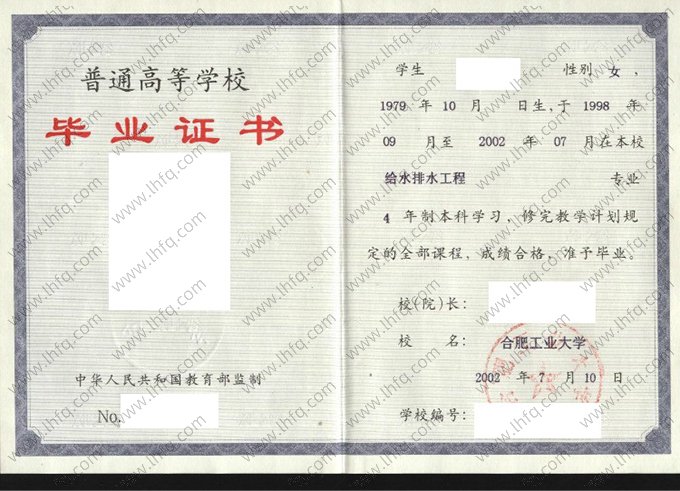 普通高等学校
毕业证书
中华人民共和国教育部监制
No.
学生 性别 女，
1979 年 10 月 日生，于 1998 年
09 月至 2002 年 07 月在本校
给水排水工程 专业
4 年制本科学习，修完教学计划规
定的全部课程，成绩合格，准予毕业。
校(院)长:
校 名: 合肥工业大学
2002 年 7 月 10 日
学校编号:
www.lhfq.com